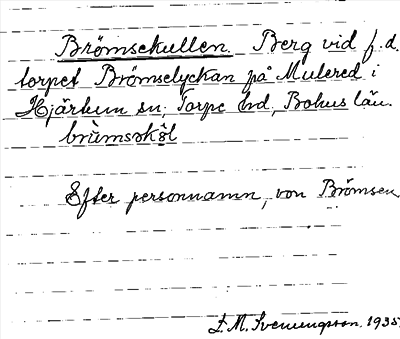 Brömsekullen. Berg vid f. d.
torpet Brömselyckan på Mulered i
Hjärtum sn, Torpe hd, Bohus län.
brùmsəkɔ̀l
Efter personnamn, von Brömsen
F. M. Svenungsson. 1935.